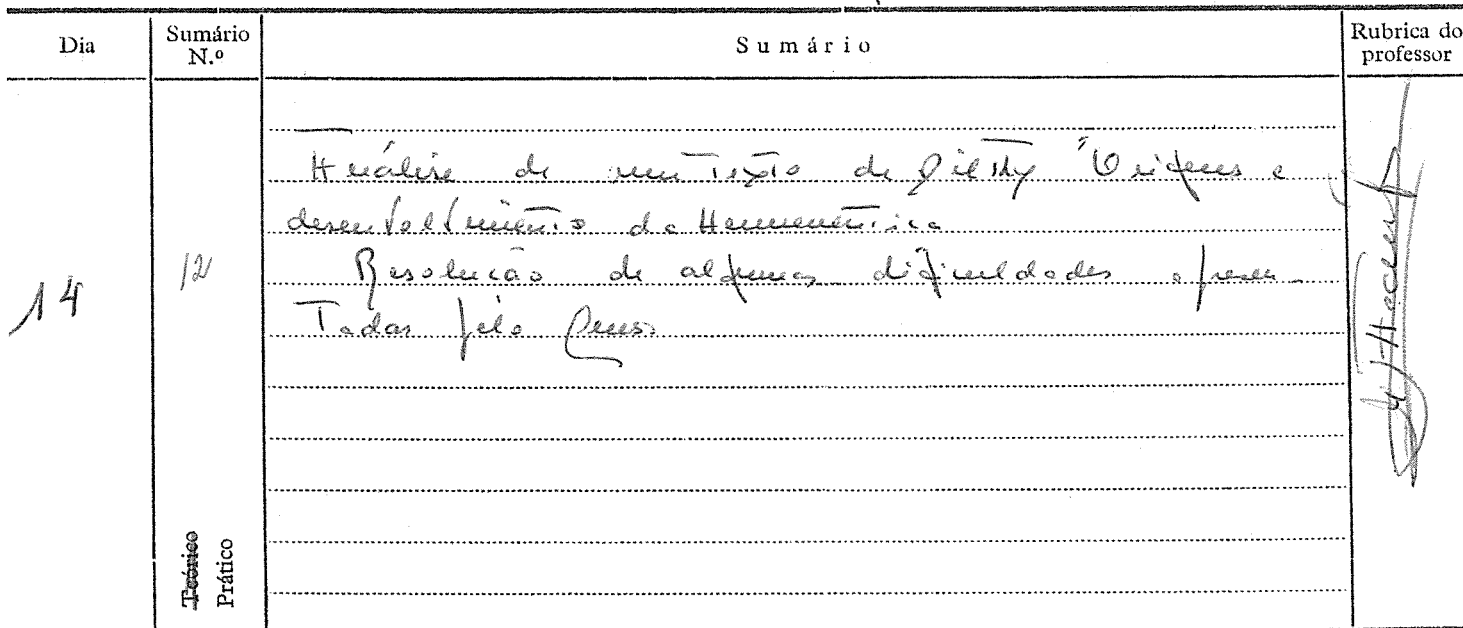 Dia
Sumário N.º
Sumário
Rubrica do professor
14
12
Análise de um Texto de Dilthy "Origens e
desenvolvimento da Hermenêutica
Resolução de algumas dificuldades apresen-
Tadas pelo
Teórico
Prático